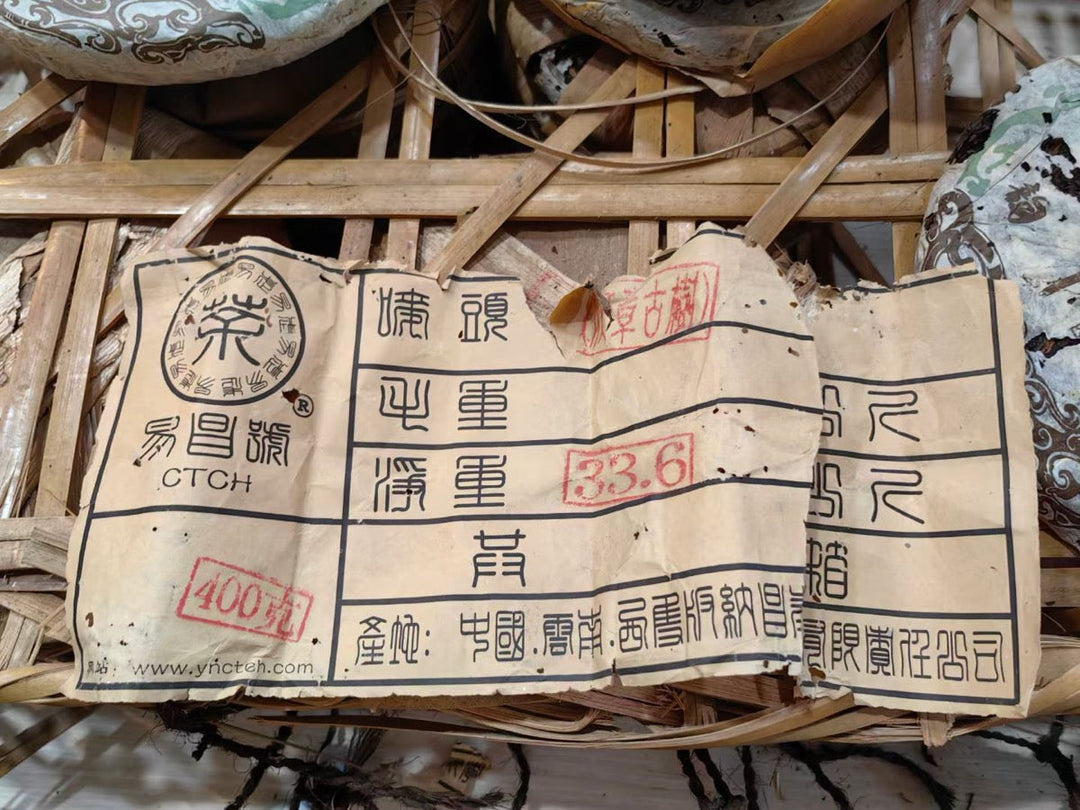 茶
易昌號
CTCH
400克
www.yncteh.com
嘜頭 章古樹
毛重 公斤
淨重 33.6 公斤
共 箱
產地:中國.雲南.西雙版納昌 有限責任公司